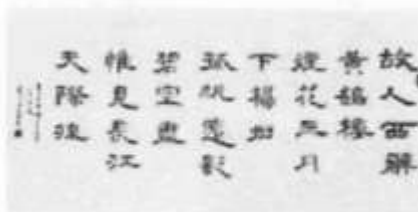 故人西辭
黃鶴樓
煙花三月
下揚州
孤帆遠影
碧空盡
惟見長江
天際流